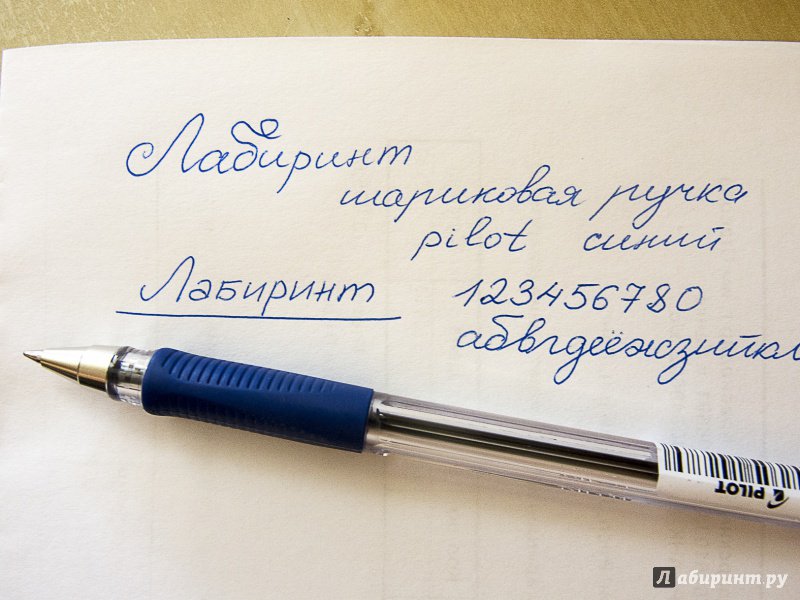 Лабиринт
шариковая ручка
pilot синий
Лабиринт 123456780
абвгдеёжзийкл
PILOT
Лабиринт.ру